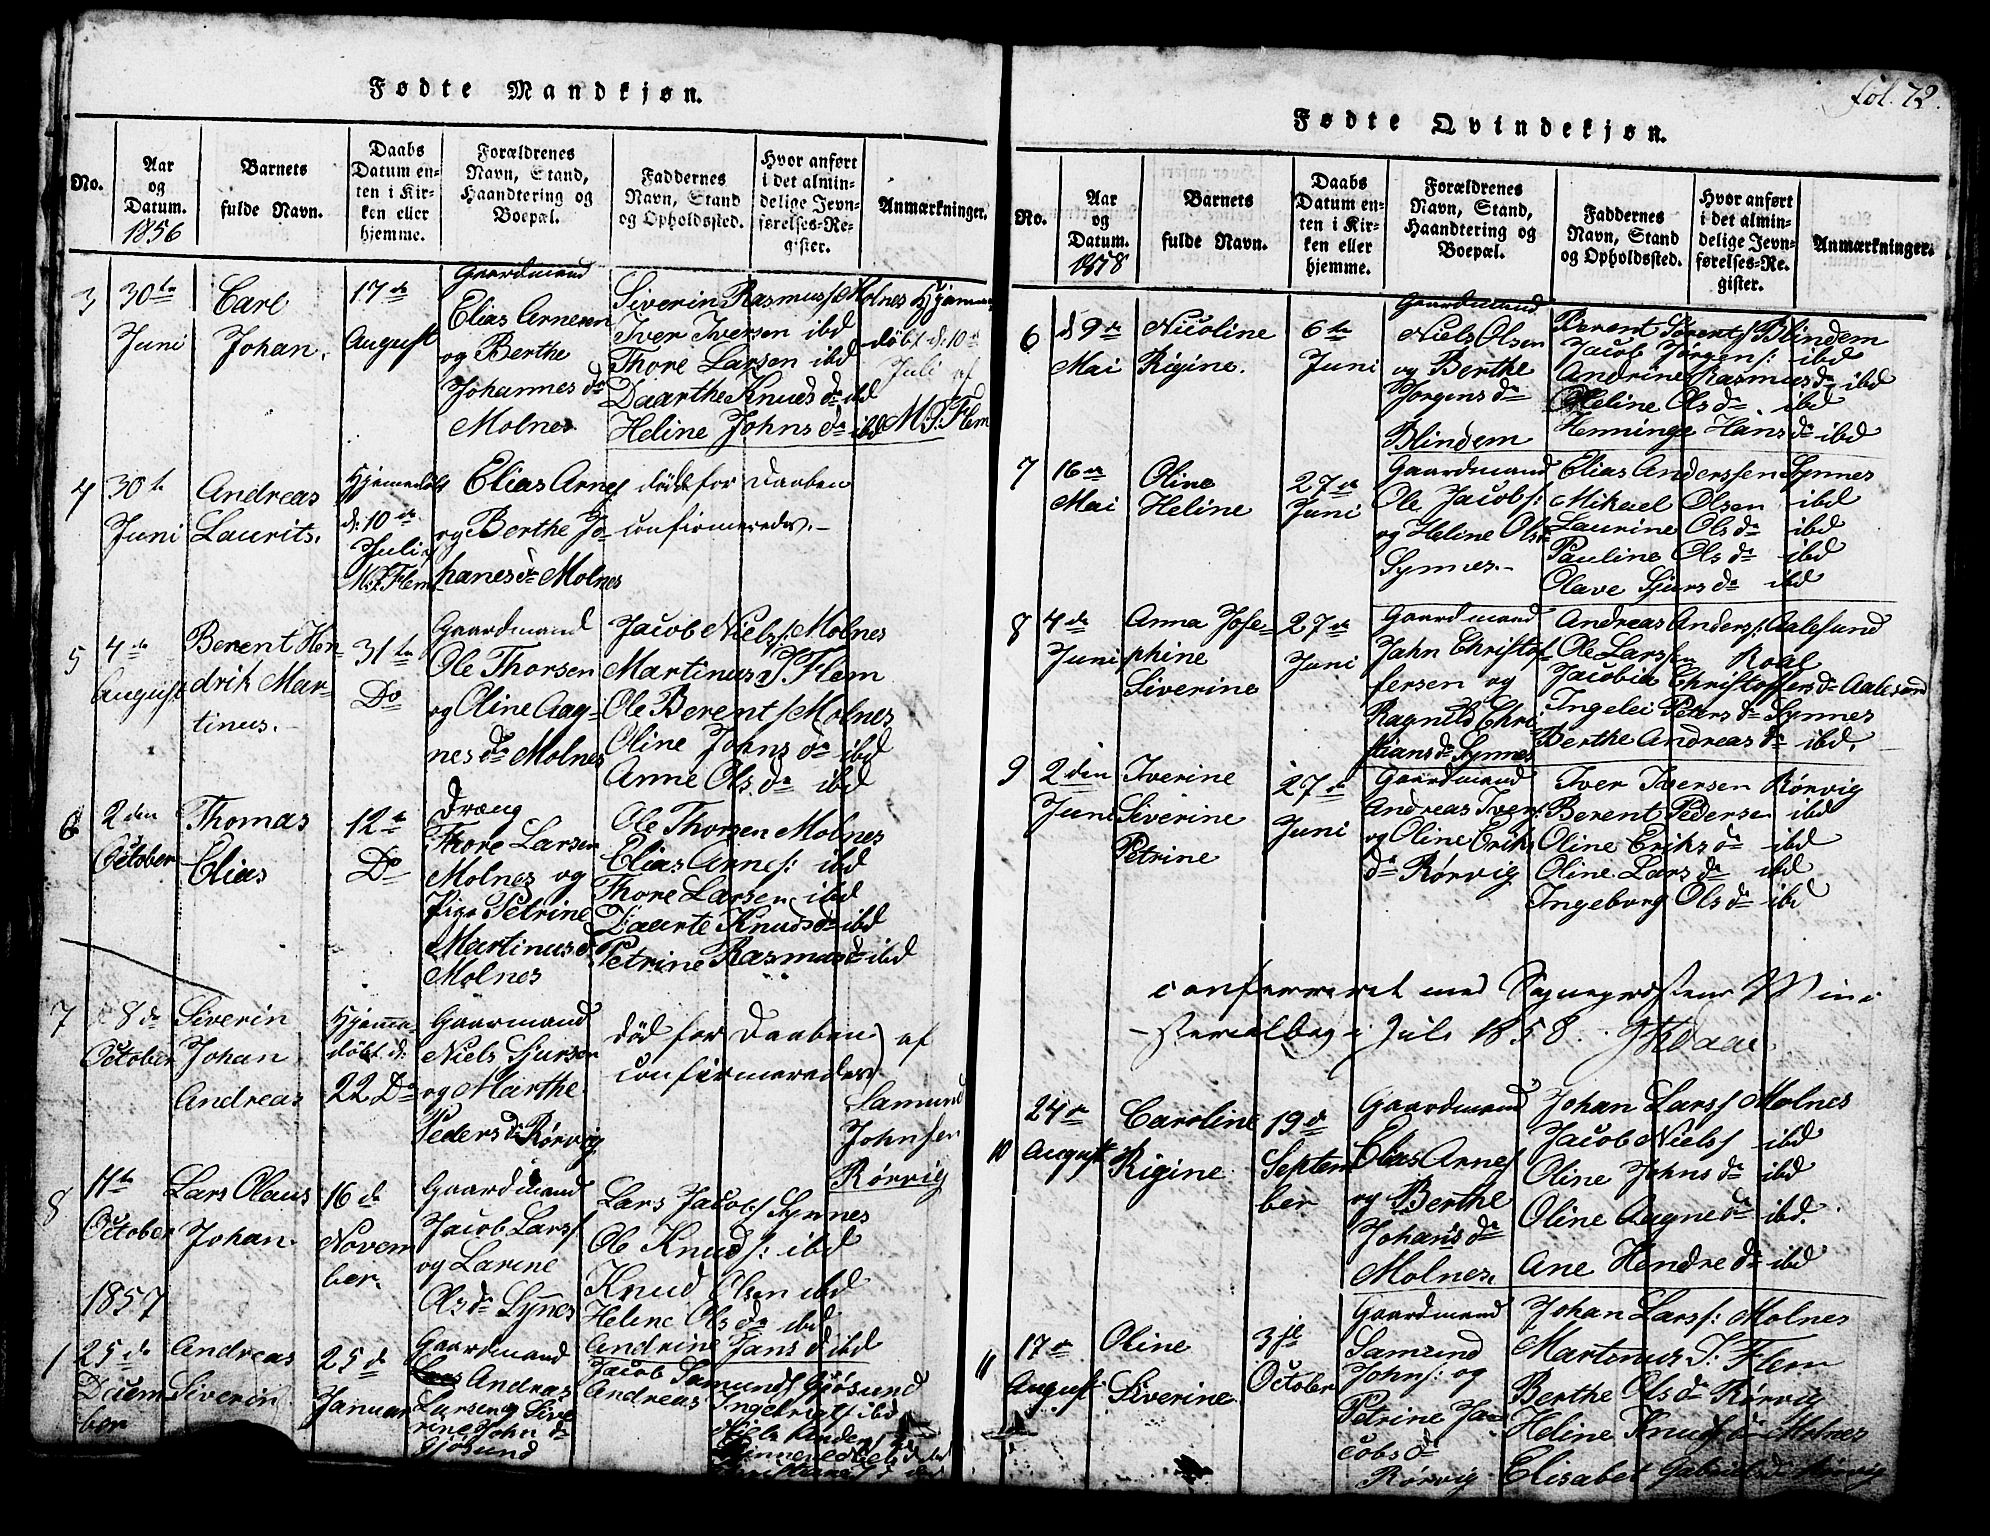 Fol. 72.
Fødte Mandkjøn.
No.
Aar og Datum. 1856
Barnets fulde Navn.
Daabs Datum enten i Kirken eller hjemme.
Forældrenes Navn, Stand, Haandtering og Boepæl.
Faddernes Navn, Stand og Opholdssted.
Hvor anført i det almindelige Jevnførelses-Register.
Anmærkninger.
3
30te Juni
Carl Johan.
17de August
Gaardmand
Elias Arnesen
og Berthe
Johannesdr
Molnes
Siverin Rasmuss Molnes
Iver Iversen ibd
Thore Larsen ibd
Daarthe Knudsdr ibd
Heline Johnsdr ibd
Hjemme
døbt d: 10de
Juli af
M. J. Flem
4
30te Juni
Andreas Laurits.
Hjemmedøbt
d: 10de
Juli
M. J. Flem
Elias Arnes
og Berthe Jo-
hanesdr Molnes
døde for Daaben
confirmeredes.-
5
4de August
Berent Hen-
drik Mar-
tinus.-
31te
Do
Gaardmand
Ole Thorsen
og Oline Aag-
nesdr Molnes
Jacob Niels: Molnes
Martinus J Flem
Ole Berents Molnes
Oline Johnsdr ibd
Anne Olsdr ibd
6
2den October
Thomas
Elias
12te
Do
Dræng
Thore Larsen
Molnes og
Pige Petrine
Martinusd.
Molnes
Ole Thorsen Molnes
Elias Arnes: ibd
Thore Larsen ibd
Daarte Knudsdr ibd
Petrine Rasmusdr ibd
7
8de October
Siverin
Johan
Andreas
Hjemme-
døbt d:
22 Do
Gaarmand
Niels Sjursen
og Marthe
Pedersdr Rørvig
død for Daaben
confirmeredes
af
Samund
Johnsen
Rørvig
8
11te October
Lars Olaus
Johan.
16de
Novem
ber
Gaardmand
Jacob Larss
og Larine
Olsdr Synnes
Lars Jacobs Synnes
Ole Knuds: ibd
Knud Olsen ibd
Heline Olsdr ibd
Andrine Jansd ibd
1857
1
25de
Decem
ber
Andreas
Siverin
25d
Januar
Gaardmand
Andreas
Larsen og Sive
rine Johndr
Gjøsund
Jacob Samunds Gjøsund
Andreas Ingebrigts ibd
Fødte Qvindekjøn.
No.
Aar og Datum. 1858
Barnets fulde Navn.
Daabs Datum enten i Kirken eller hjemme.
Forældrenes Navn, Stand, Haandtering og Boepæl.
Faddernes Navn, Stand og Opholdssted.
Hvor anført i det almindelige Jevnførelses-Register.
Anmærkninger.
6
d 9de Mai
Nicoline
Rigine.
6te
Juni
Gaardmand
Niels Olsen
og Berthe
Jørgensdr
Blindem
Berent Sørents Blindem
Jacob Jørgens: ibd
Andrine Rasmusdr ibd
Heline Olsdr ibd
Henninge Hansdr ibd
7
16de Mai
Oline
Heline
27de
Juni
Gaardmand
Ole Jacobs:
og Heline Olsdr
Synnes.-
Elias Anderssen Synnes
Mikael Olsen ibd
Laurine Olsdr ibd
Pauline Olsdr ibd
Olave Sjursdr ibd
8
4de Juni
Anna Jose-
phine
Siverine
27de
Juni
Gaardmand
Jahn Christof-
fersen og
Ragnild Chri
stiansdr Synnes
Andreas Anders: Aalesund
Ole Larssen Roal
Jacobia Christoffersdr Aalesund
Ingelei Petersdr Synnes
Berthe Andreasdr ibd.
9
2den Juni
Iverine
Siverine
Petrine
27de
Juni
Gaardmand
Andreas Ivers:
og Oline Eriks
dr Rørvig
Iver Iversen Rørvig
Berent Pedersen ibd
Oline Eriksdr ibd
Oline Larsdr ibd
Ingeborg Olsdr ibd
conferreret med Sognepræstens Mini-
sterialbog i Juli 1858.
10
24de August
Caroline
Rigine
19d
Septem
ber
Gaardmand
Elias Arnes
og Berthe
Johansdr
Molnes.
Johan Larss Molnes
Jacob Niels ibd
Oline Johnsdr ibd
Oline Aagnedr ibd.
Ane Hendredr ibd
11
17de August
Oline
Siverine
3die
October
Gaardmand
Samund
Johns: og
Petrine Ja-
cobsdr
Rørvig
Johan Larss: Molnes
Martinus J: Flem
Berthe Olsdr Rørvig
Heline Knudsdr Molnes
Elisabet Gabrielsdr Rørvig